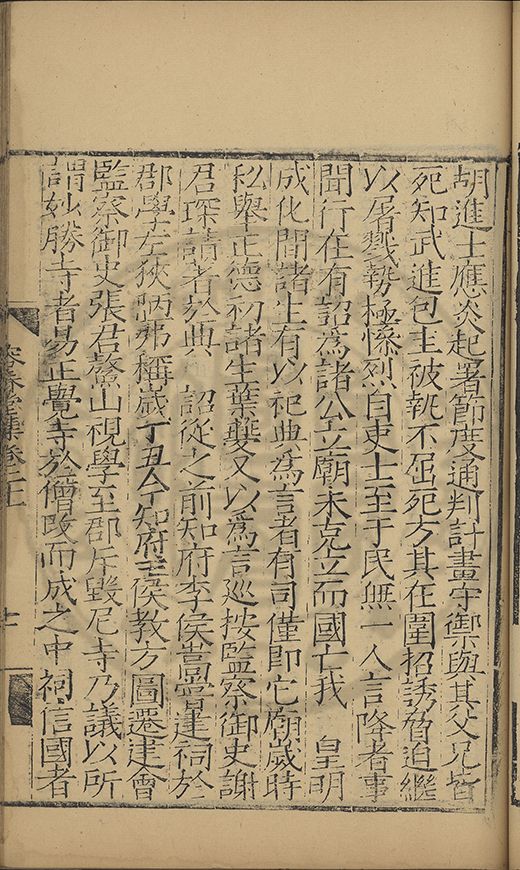 胡進士應炎起署節度通判計畫守禦與其父兄皆
死知武進包圭被執不屈死方其在圍招誘脅迫繼
以屠戮勢極慘烈自吏士至于民無一人言降者事
聞行在有詔為諸公立廟未克立而國亡我 皇明
成化間諸生有以祀典為言者有司僅即它廟歲時
私舉正德初諸生葉夔又以為言巡按監察御史謝
君琛請著於典 詔從之前知府李侯嵩嘗建祠於
郡學左狹陋弗稱歲丁丑今知府王侯教方圖遷建會
監察御史張君鰲山視學至郡斥毀尼寺乃議以所
謂妙勝寺者易正覺寺於僧改而成之中祠信國者
容春堂集卷二十